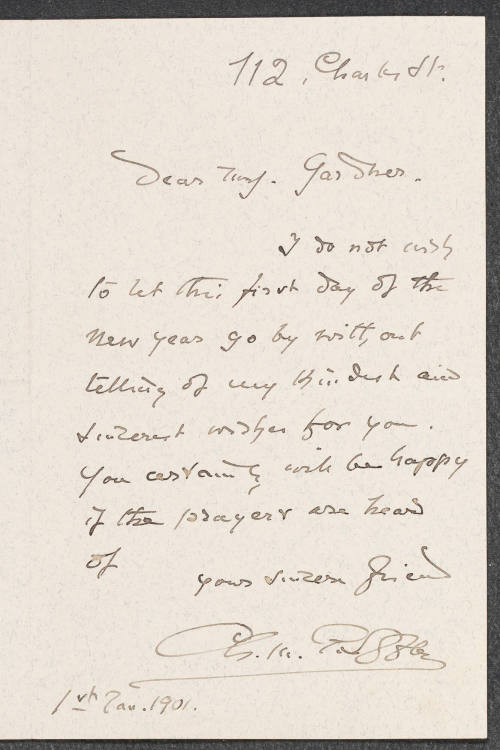 112, Charles St.
Dear Mrs. Gardner.
I do not wish
to let this first day of the
new year go by without
telling of my kindest and
sincerest wishes for you.
You certainly will be happy
if the prayers are heard
of
yours sincere friend
Ch. M. Loeffler
1st Jan. 1901.